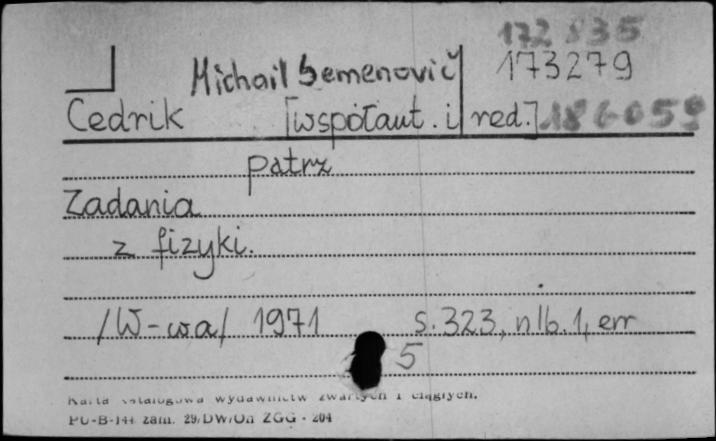 172 835
Michail Semenovič 173279
Cedrik [współaut. i red.] 186059
patrz
Zadania
z fizyki.
/W-wa/ 1971 s. 323, nlb. 1, err
5
Karta katalogowa wydawnictw zwartych i ciągłych.
PU-B-144 zam. 29/DW/On ZGG - 204